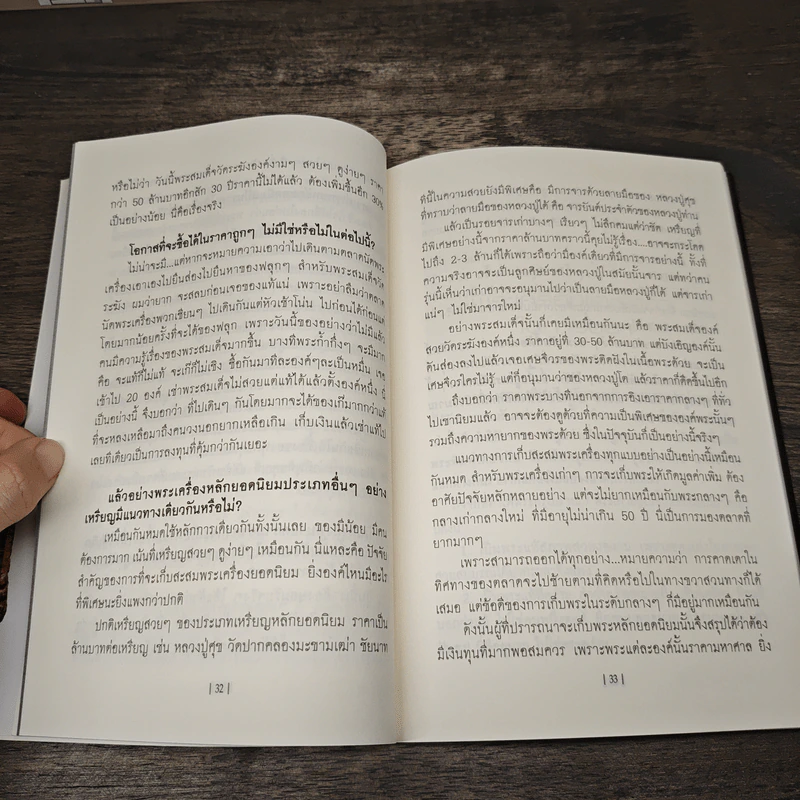 หรือไม่ว่า วันนี้พระสมเด็จวัดระฆังองค์งามๆ สวยๆ ดูง่ายๆ ราคา
กว่า 50 ล้านบาทอีกสัก 30 ปีราคานี้ไม่ได้แล้ว ต้องเพิ่มขึ้นอีก 30%
เป็นอย่างน้อย นี่คือเรื่องจริง
โอกาสที่จะซื้อได้ในราคาถูกๆ ไม่มีใช่หรือไม่ในต่อไปนี้?
ไม่น่าจะมี...แต่หากจะหมายความเอาว่าไปเดินตามตลาดนัดพระ
เครื่องเอาเองไปยืนส่องไปยืนหาของฟลุกๆ สำหรับพระสมเด็จวัด
ระฆัง ผมว่ายาก จะสลบก่อนเจอของแท้แน่ เพราะอย่าลืมว่าตลาด
นัดพระเครื่องพวกเซียนๆ ไปเดินกันแต่หัวเช้าโน่น ไปก่อนได้ก่อนแต่
โดยมากน้อยครั้งที่จะได้ของฟลุก เพราะวันนี้ของอย่างว่าไม่มีแล้ว
คนมีความรู้เรื่องของพระสมเด็จมากขึ้น บางทีพระก้ำกึ่งๆ จะมีมาก
คือ จะแท้ก็ไม่แท้ จะเก๊ก็ไม่เชิง ซื้อกันมาทีละองค์ๆละเป็นหมื่น เจอ
เข้าไป 20 องค์ เช่าพระสมเด็จไม่สวยแต่แท้ได้แล้วตั้งองค์หนึ่ง นี่
เป็นอย่างนี้ จึงบอกว่า ที่ไปเดินๆ กันโดยมากจะได้ของเก๊มากกว่าแท้
ที่จะหลงเหลือมาถึงคนวงนอกยากเหลือเกิน เก็บเงินแล้วเช่าแท้ไป
เลยทีเดียวเป็นการลงทุนที่คุ้มกว่ากันเยอะ
แล้วอย่างพระเครื่องหลักยอดนิยมประเภทอื่นๆ อย่าง
เหรียญมีแนวทางเดียวกันหรือไม่?
เหมือนกันหมดใช้หลักการเดียวกันทั้งนั้นเลย ของมีน้อย มีคน
ต้องการมาก เน้นที่เหรียญสวยๆ ดูง่ายๆ เหมือนกัน นี่แหละคือ ปัจจัย
สำคัญของการที่จะเก็บสะสมพระเครื่องยอดนิยม ยิ่งองค์ไหนมีอะไร
ที่พิเศษนะยิ่งแพงกว่าปกติ
ปกติเหรียญสวยๆ ของประเภทเหรียญหลักยอดนิยม ราคาเป็น
ล้านบาทต่อเหรียญ เช่น หลวงปู่ศุข วัดปากคลองมะขามเฒ่า ชัยนาท
| 32 |
ที่นี้ในความสวยยังมีพิเศษคือ มีการจารด้วยลายมือของ หลวงปู่ศุข
ที่ทราบว่าลายมือของหลวงปู่ได้ คือ จารยันต์ประจำตัวของหลวงปู่ท่าน
แล้วเป็นรอยจารเก่าบางๆ เรียวๆ ไม่ลึกคมแต่ว่าชัด เหรียญที่
มีพิเศษอย่างนี้จากราคาล้านบาทคราวนี้คุยไม่รู้เรื่อง....อาจจะกระโดด
ไปถึง 2-3 ล้านก็ได้เพราะถือว่ามีองค์เดียวที่มีการจารอย่างนี้ ทั้งที่
ความจริงอาจจะเป็นลูกศิษย์ของหลวงปู่ในสมัยนั้นจาร แต่ทว่าคน
รุ่นนี้เห็นว่าเก่าอาจจะอนุมานไปว่าเป็นลายมือหลวงปู่ก็ได้ แต่จารเก่า
แน่ๆ ไม่ใช่มาจารใหม่
อย่างพระสมเด็จนั้นก็เคยมีเหมือนกันนะ คือ พระสมเด็จองค์
สวยวัดระฆังองค์หนึ่ง ราคาอยู่ที่ 30-50 ล้านบาท แต่บังเอิญองค์นั้น
ดันส่องลงไปแล้วเจอเศษจีวรของพระติดฝังในเนื้อพระด้วย จะเป็น
เศษจีวรใครไม่รู้ แต่ก็อนุมานว่าของหลวงปู่โต แล้วราคาก็ดีดขึ้นไปอีก
ถึงบอกว่า ราคาพระบางทีนอกจากการอิงเอาราคากลางๆ ที่ทั่ว
ไปเขานิยมแล้ว อาจจะต้องดูด้วยที่ความเป็นพิเศษขององค์พระนั้นๆ
รวมถึงความหายากของพระด้วย ซึ่งในปัจจุบันก็เป็นอย่างนี้จริงๆ
แนวทางการเก็บสะสมพระเครื่องทุกแบบอย่างเป็นอย่างนี้เหมือน
กันหมด สำหรับพระเครื่องเก่าๆ การจะเก็บพระให้เกิดมูลค่าเพิ่ม ต้อง
อาศัยปัจจัยหลักหลายอย่าง แต่จะไม่ยากเหมือนกับพระกลางๆ คือ
กลางเก่ากลางใหม่ ที่มีอายุไม่น่าเกิน 50 ปี นี้เป็นการมองตลาดที่
ยากมากๆ
เพราะสามารถออกได้ทุกอย่าง...หมายความว่า การคาดเดาใน
ทิศทางของตลาดจะไปซ้ายตามที่คิดหรือไปในทางขวาสวนทางก็ได้
เสมอ แต่ข้อดีของการเก็บพระในระดับกลางๆ ก็มีอยู่มากเหมือนกัน
ดังนั้นผู้ที่ปรารถนาจะเก็บพระหลักยอดนิยมนั้นจึงสรุปได้ว่าต้อง
มีเงินทุนที่มากพอสมควร เพราะพระแต่ละองค์นั้นราคามหาศาล ยิ่ง
| 33 |